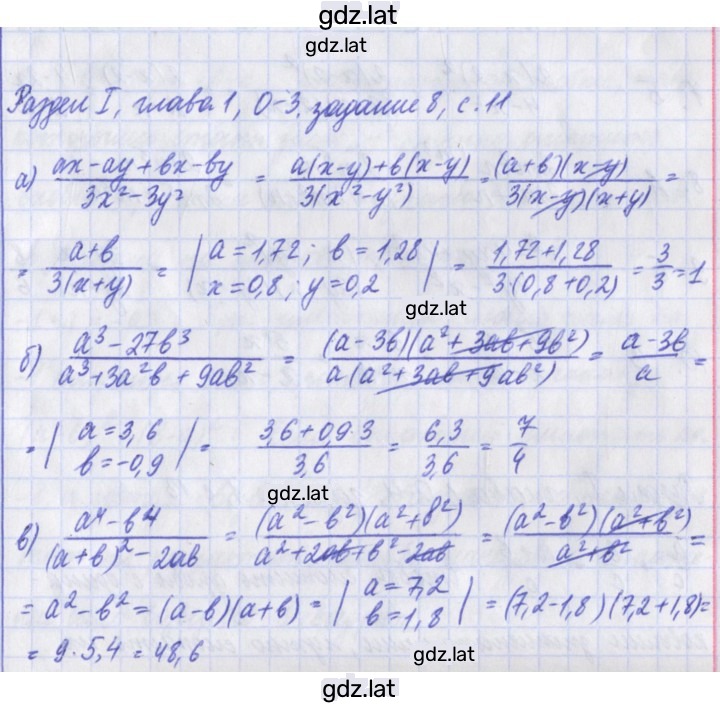 gdz.lat
gdz.lat
Раздел I, глава 1, О-3. задание 8, с. 11
а) (ax-ay+bx-by)/(3x²-3y²) = (a(x-y)+b(x-y))/(3(x²-y²)) = ((a+b)(x-y))/(3(x-y)(x+y)) =
= (a+b)/(3(x+y)) = | a=1,72; b=1,28 x=0,8; y=0,2 | = (1,72+1,28)/(3(0,8+0,2)) = 3/3 = 1
gdz.lat
б) (a³-27b³)/(a³+3a²b+9ab²) = ((a-3b)(a²+3ab+9b²))/(a(a²+3ab+9ab²)) = (a-3b)/a =
= | a=3,6 b=-0,9 | = (3,6+0,9·3)/3,6 = 6,3/3,6 = 7/4
gdz.lat
в) (a⁴-b⁴)/((a+b)²-2ab) = ((a²-b²)(a²+b²))/(a²+2ab+b²-2ab) = ((a²-b²)(a²+b²))/(a²+b²) =
= a²-b² = (a-b)(a+b) = | a=7,2 b=1,8 | = (7,2-1,8)(7,2+1,8)=
= 9·5,4 = 48,6
gdz.lat
gdz.lat